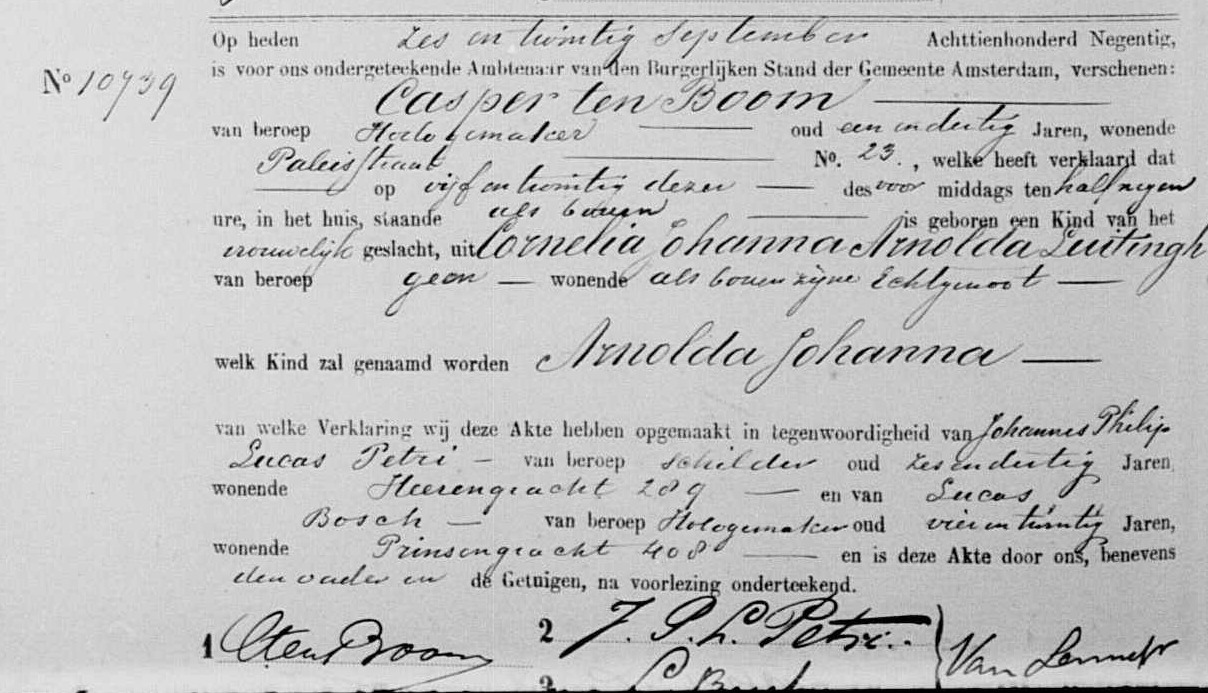 Op heden zes en twintig September Achttienhonderd Negentig,
No 10739 is voor ons ondergeteekende Ambtenaar van den Burgerlijken Stand der Gemeente Amsterdam, verschenen:
Casper ten Boom
van beroep Horlogemaker oud een en dertig Jaren, wonende
Paleisstraat No. 23., welke heeft verklaard dat
op vijf en twintig dezer des voor middags ten half negen
ure, in het huis, staande als boven is geboren een Kind van het
vrouwelijk geslacht, uit Cornelia Johanna Arnolda Luitingh
van beroep geen wonende als boven zijne Echtgenoot
welk Kind zal genaamd worden Arnolda Johanna
van welke Verklaring wij deze Akte hebben opgemaakt in tegenwoordigheid van Johannes Philip
Lucas Petri van beroep schilder oud zes en dertig Jaren
wonende Heerengracht 289 en van Lucas
Bosch van beroep Hologemaker oud vier en twintig Jaren,
wonende Prinsengracht 408 en is deze Akte door ons, benevens
den vader en de Getuigen, na voorlezing onderteekend.
1 CtenBoom 2 J. P. L. Petri. Van Lennep
3